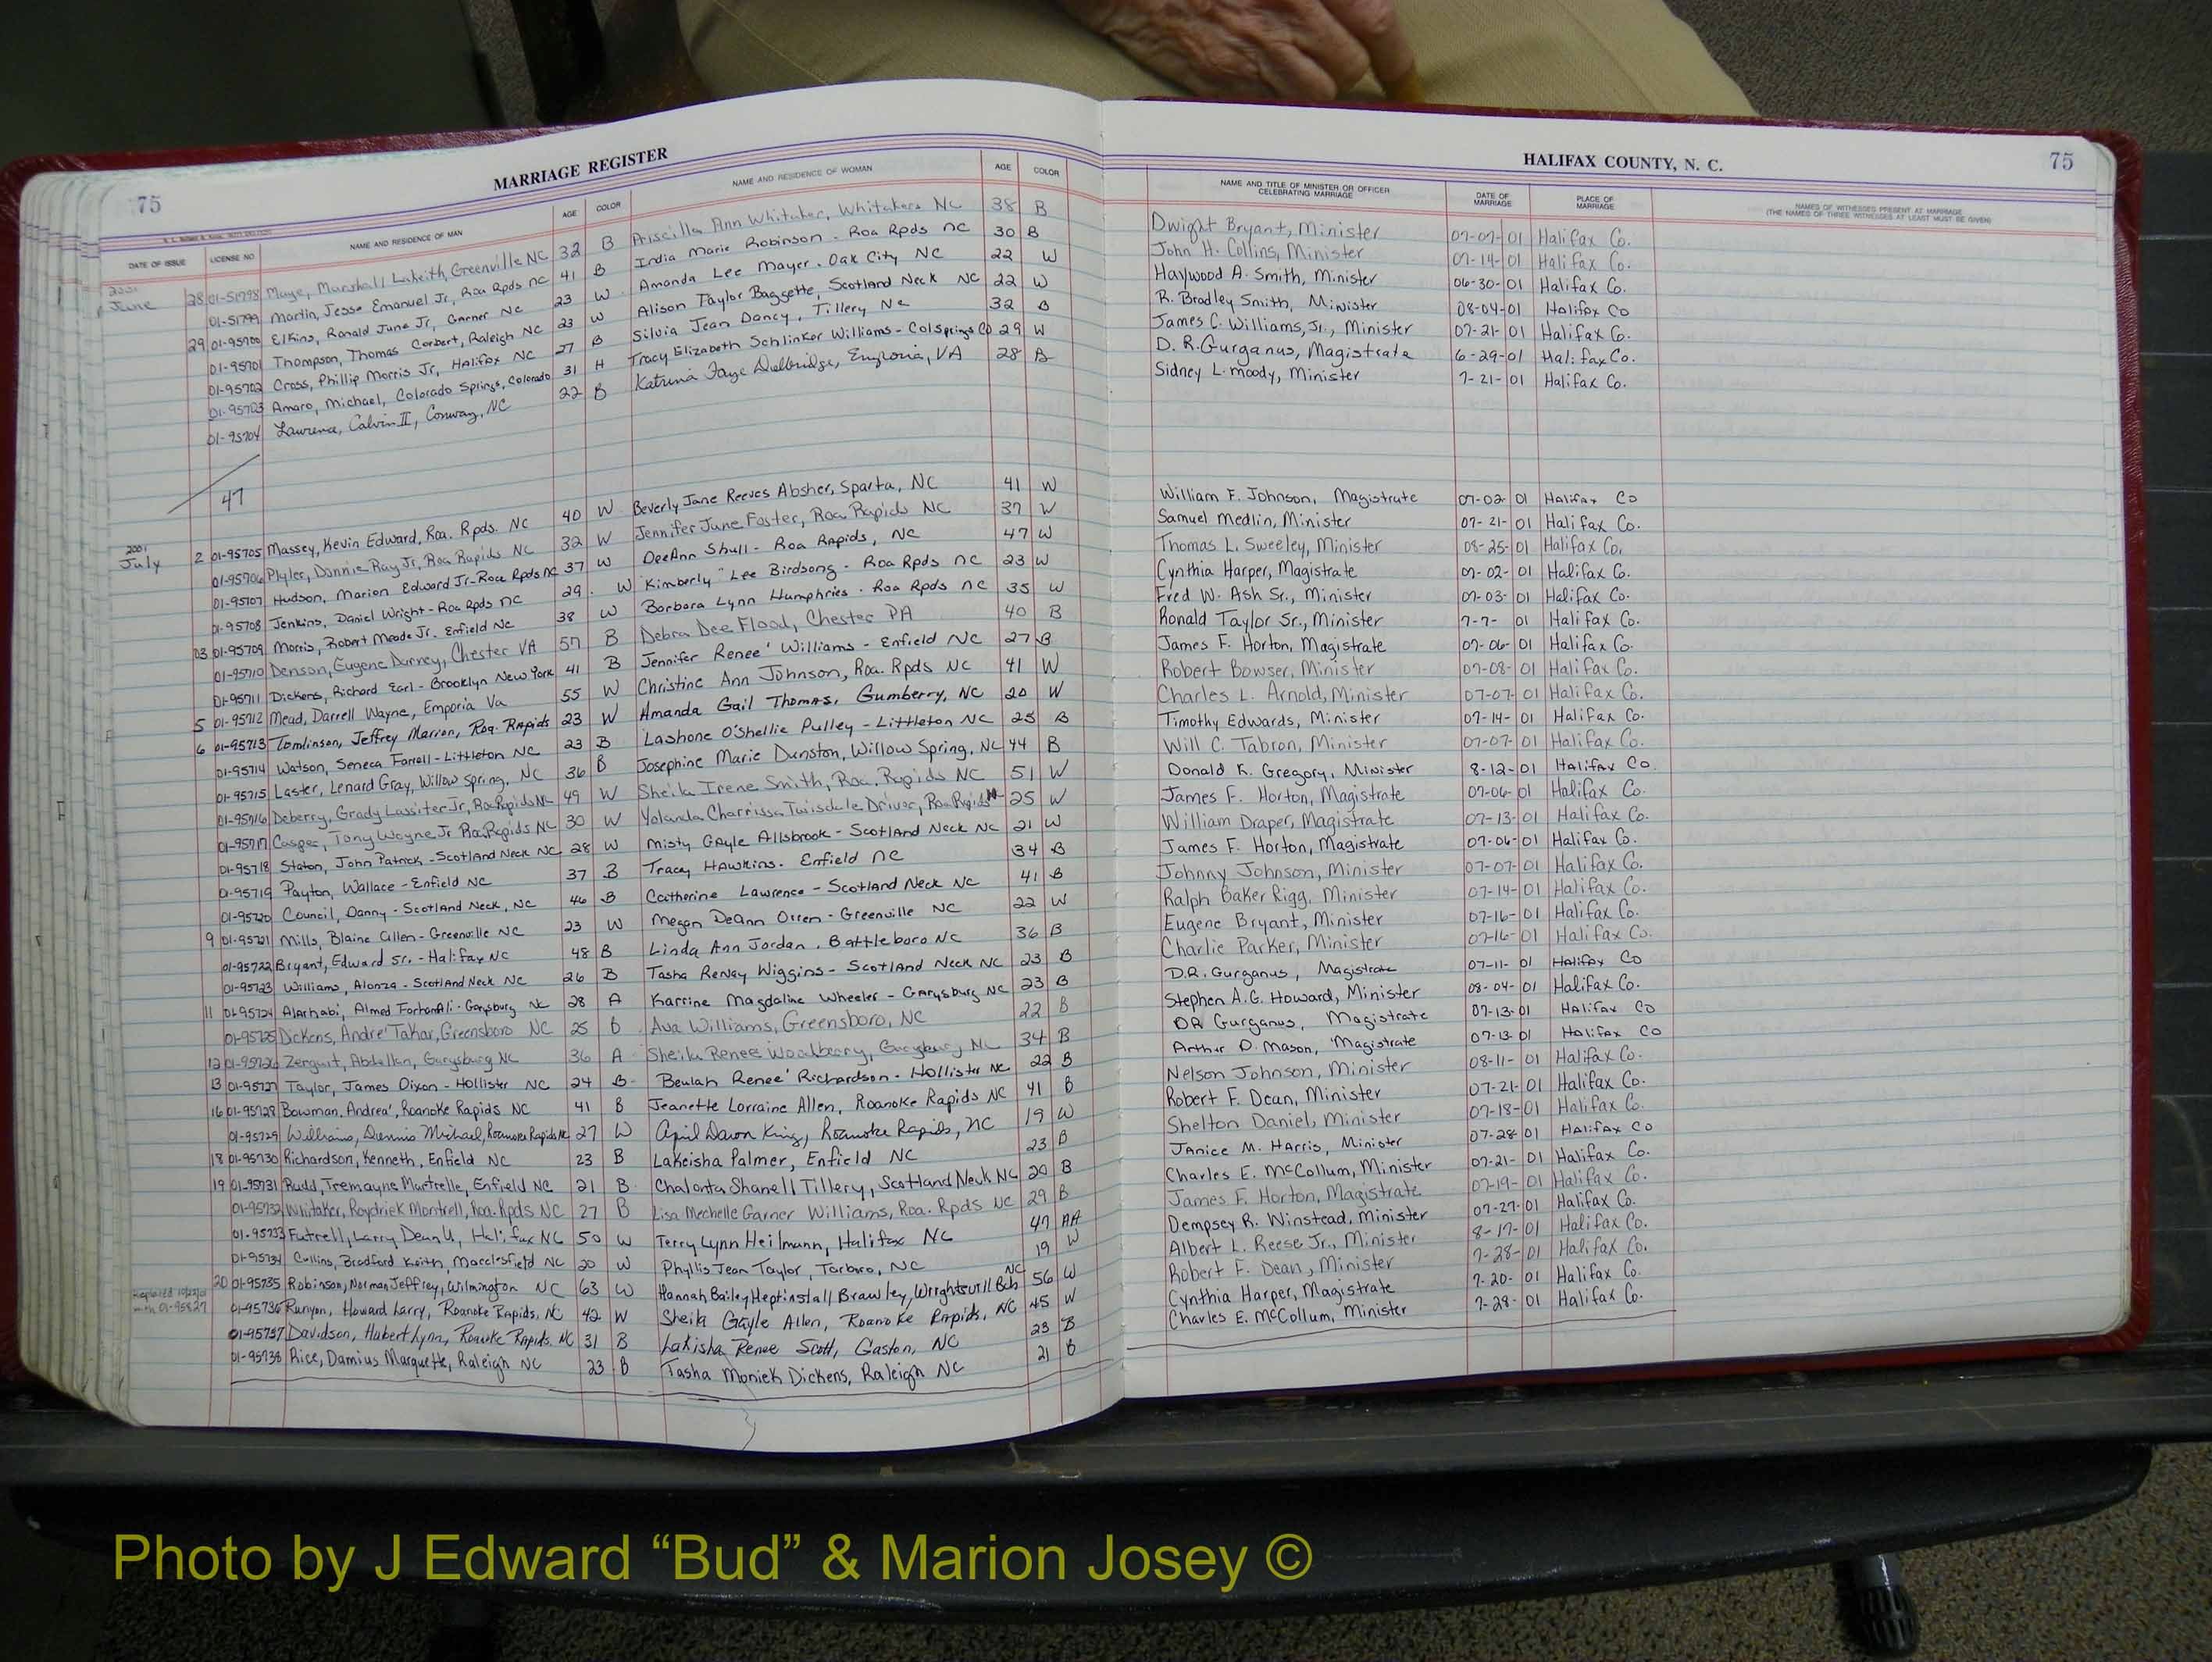 75 MARRIAGE REGISTER
HALIFAX COUNTY, N. C. 75
DATE OF ISSUE LICENSE NO NAME AND RESIDENCE OF MAN AGE COLOR NAME AND RESIDENCE OF WOMAN AGE COLOR NAME AND TITLE OF MINISTER OR OFFICER CELEBRATING MARRIAGE DATE OF MARRIAGE PLACE OF MARRIAGE NAMES OF WITNESSES PRESENT AT MARRIAGE (THE NAMES OF THREE WITNESSES AT LEAST MUST BE GIVEN)
2001
June 28 01-51798 Maye, Marshall Lakeith, Greenville NC 32 B Priscilla Ann Whitaker, Whitakers NC 38 B Dwight Bryant, Minister 07-07-01 Halifax Co.
01-51799 Martin, Jesse Emanuel Jr, Roa Rpds NC 41 B India Marie Robinson - Roa Rpds NC 30 B John H. Collins, Minister 07-14-01 Halifax Co.
29 01-95700 Elkins, Ronald June Jr, Garner NC 23 W Amanda Lee Mayer, Oak City NC 22 W Haywood A. Smith, Minister 06-30-01 Halifax Co.
01-95701 Thompson, Thomas Corbert, Raleigh NC 23 W Alison Taylor Baggette, Scotland Neck NC 22 W R. Bradley Smith, Minister 08-04-01 Halifax Co
01-95702 Cross, Phillip Morris Jr, Halifax NC 27 B Silvia Jean Dancy, Tillery NC 32 B James C. Williams, Jr., Minister 07-21-01 Halifax Co.
01-95703 Amaro, Michael, Colorado Springs, Colorado 31 H Tracy Elizabeth Schlinker Williams - Col Springs CO 29 W D. R. Gurganus, Magistrate 6-29-01 Halifax Co.
01-95704 Lawrence, Calvin II, Conway, NC 22 B Katrina Faye Delbridge, Emporia, VA 28 B Sidney L. Moody, Minister 7-21-01 Halifax Co.
47
2001
July 2 01-95705 Massey, Kevin Edward, Roa. Rpds. NC 40 W Beverly Jane Reeves Absher, Sparta, NC 41 W William F. Johnson, Magistrate 07-02-01 Halifax Co
01-95706 Plyler, Donnie Ray Jr, Roa Rapids NC 32 W Jennifer June Foster, Roa Rapids NC 37 W Samuel Medlin, Minister 07-21-01 Halifax Co.
01-95707 Hudson, Marion Edward Jr - Roa Rpds NC 37 W DeeAnn Shull - Roa Rapids, NC 47 W Thomas L. Sweeley, Minister 08-25-01 Halifax Co.
01-95708 Jenkins, Daniel Wright - Roa Rpds NC 29 W Kimberly Lee Birdsong - Roa Rpds NC 23 W Cynthia Harper, Magistrate 07-02-01 Halifax Co.
03 01-95709 Morris, Robert Meade Jr. Enfield NC 38 W Barbara Lynn Humphries - Roa Rpds NC 35 W Fred W. Ash Sr., Minister 07-03-01 Halifax Co.
01-95710 Denson, Eugene Durney, Chester VA 57 B Debra Dee Flood, Chester PA 40 B Ronald Taylor Sr., Minister 7-7-01 Halifax Co.
01-95711 Dickens, Richard Earl - Brooklyn New York 41 B Jennifer Renee' Williams - Enfield NC 27 B James F. Horton, Magistrate 07-06-01 Halifax Co.
5 01-95712 Mead, Darrell Wayne, Emporia Va 55 W Christine Ann Johnson, Roa. Rpds NC 41 W Robert Bowser, Minister 07-08-01 Halifax Co.
6 01-95713 Tomlinson, Jeffrey Marion, Roa. Rapids 23 W Amanda Gail Thomas, Gumberry, NC 20 W Charles L. Arnold, Minister 07-07-01 Halifax Co.
01-95714 Watson, Seneca Farrell - Littleton NC 23 B Lashone O'Shellie Pulley - Littleton NC 25 B Timothy Edwards, Minister 07-14-01 Halifax Co.
01-95715 Laster, Lenard Gray, Willow Spring, NC 36 B Josephine Marie Dunston, Willow Spring, NC 44 B Will C. Tabron, Minister 07-07-01 Halifax Co.
01-95716 Deberry, Grady Lassiter Jr, Roa Rapids NC 49 W Sheila Irene Smith, Roa. Rapids NC 51 W Donald K. Gregory, Minister 8-12-01 Halifax Co.
01-95717 Casper, Tony Wayne Jr Roa Rapids NC 30 W Yolanda Charrissa Twisdale Driver, Roa Rapids 25 W James F. Horton, Magistrate 07-06-01 Halifax Co.
01-95718 Staton, John Patrick - Scotland Neck NC 28 W Misty Gayle Allsbrook - Scotland Neck NC 21 W William Draper, Magistrate 07-13-01 Halifax Co.
01-95719 Payton, Wallace - Enfield NC 37 B Tracy Hawkins. Enfield NC 34 B James F. Horton, Magistrate 07-06-01 Halifax Co.
01-95720 Council, Danny - Scotland Neck, NC 46 B Catherine Lawrence - Scotland Neck NC 41 B Johnny Johnson, Minister 07-07-01 Halifax Co.
9 01-95721 Mills, Blaine Allen - Greenville NC 23 W Megan DeAnn Orren - Greenville NC 22 W Ralph Baker Rigg, Minister 07-14-01 Halifax Co.
01-95722 Bryant, Edward Sr. - Halifax NC 48 B Linda Ann Jordan. Battleboro NC 36 B Eugene Bryant, Minister 07-16-01 Halifax Co.
01-95723 Williams, Alonza - Scotland Neck NC 26 B Tasha Renay Wiggins - Scotland Neck NC 23 B Charlie Parker, Minister 07-16-01 Halifax Co.
11 01-95724 Alarhabi, Almed - Garysburg NC 28 A Karrine Magdaline Wheeler - Garysburg NC 23 B D.R. Gurganus, Magistrate 07-11-01 Halifax Co
01-95725 Dickens, Andre' Takar, Greensboro NC 25 B Ava Williams, Greensboro, NC 22 B Stephen A.G. Howard, Minister 08-04-01 Halifax Co.
12 01-95726 Zerguit, Abdellah, Garysburg NC 36 A Sheila Renee Woodberry, Garysburg NC 34 B DR Gurganus, Magistrate 07-13-01 Halifax Co
13 01-95727 Taylor, James Dixon - Hollister NC 24 B Beulah Renee' Richardson - Hollister NC 22 B Arthur D. Mason, Magistrate 07-13-01 Halifax Co
16 01-95728 Bowman, Andrea', Roanoke Rapids NC 41 B Jeanette Lorraine Allen, Roanoke Rapids NC 41 B Nelson Johnson, Minister 08-11-01 Halifax Co.
01-95729 Williams, Dennis Michael, Roanoke Rapids NC 27 W April Dawn King, Roanoke Rapids, NC 19 W Robert F. Dean, Minister 07-21-01 Halifax Co.
18 01-95730 Richardson, Kenneth, Enfield NC 23 B Lakeisha Palmer, Enfield NC 23 B Shelton Daniel, Minister 07-18-01 Halifax Co.
19 01-95731 Rudd, Tremayne Martrelle, Enfield NC 21 B Chalonta Shanell Tillery, Scotland Neck NC 20 B Janice M. Harris, Minister 07-28-01 Halifax Co
01-95732 Whitaker, Roydriek Montrell, Roa. Rpds NC 27 B Lisa Mechelle Garner Williams, Roa. Rpds NC 29 B Charles E. McCollum, Minister 07-21-01 Halifax Co.
01-95733 Futrell, Larry Dean, Halifax NC 50 W Terry Lynn Heilmann, Halifax NC 47 AA James F. Horton, Magistrate 07-19-01 Halifax Co.
01-95734 Collins, Bradford Keith, Macclesfield NC 20 W Phyllis Jean Taylor, Tarboro, NC 19 W Dempsey R. Winstead, Minister 07-27-01 Halifax Co.
20 01-95735 Robinson, Norman Jeffrey, Wilmington NC 63 W Hannah Bailey Heptinstall Brawley, Wrightsvill Bch NC 56 W Albert L. Reese Jr., Minister 8-17-01 Halifax Co.
Replaced 10/25/01 with 01-95827 01-95736 Runyon, Howard Larry, Roanoke Rapids, NC 42 W Sheila Gayle Allen, Roanoke Rapids, NC 45 W Robert F. Dean, Minister 7-28-01 Halifax Co.
01-95737 Davidson, Hubert Lynn, Roanoke Rapids, NC 31 B Lakisha Renee Scott, Gaston, NC 23 B Cynthia Harper, Magistrate 7-20-01 Halifax Co.
01-95738 Rice, Damius Marquette, Raleigh NC 23 B Tasha Moniek Dickens, Raleigh NC 21 B Charles E. McCollum, Minister 7-28-01 Halifax Co.
Photo by J Edward “Bud” & Marion Josey ©